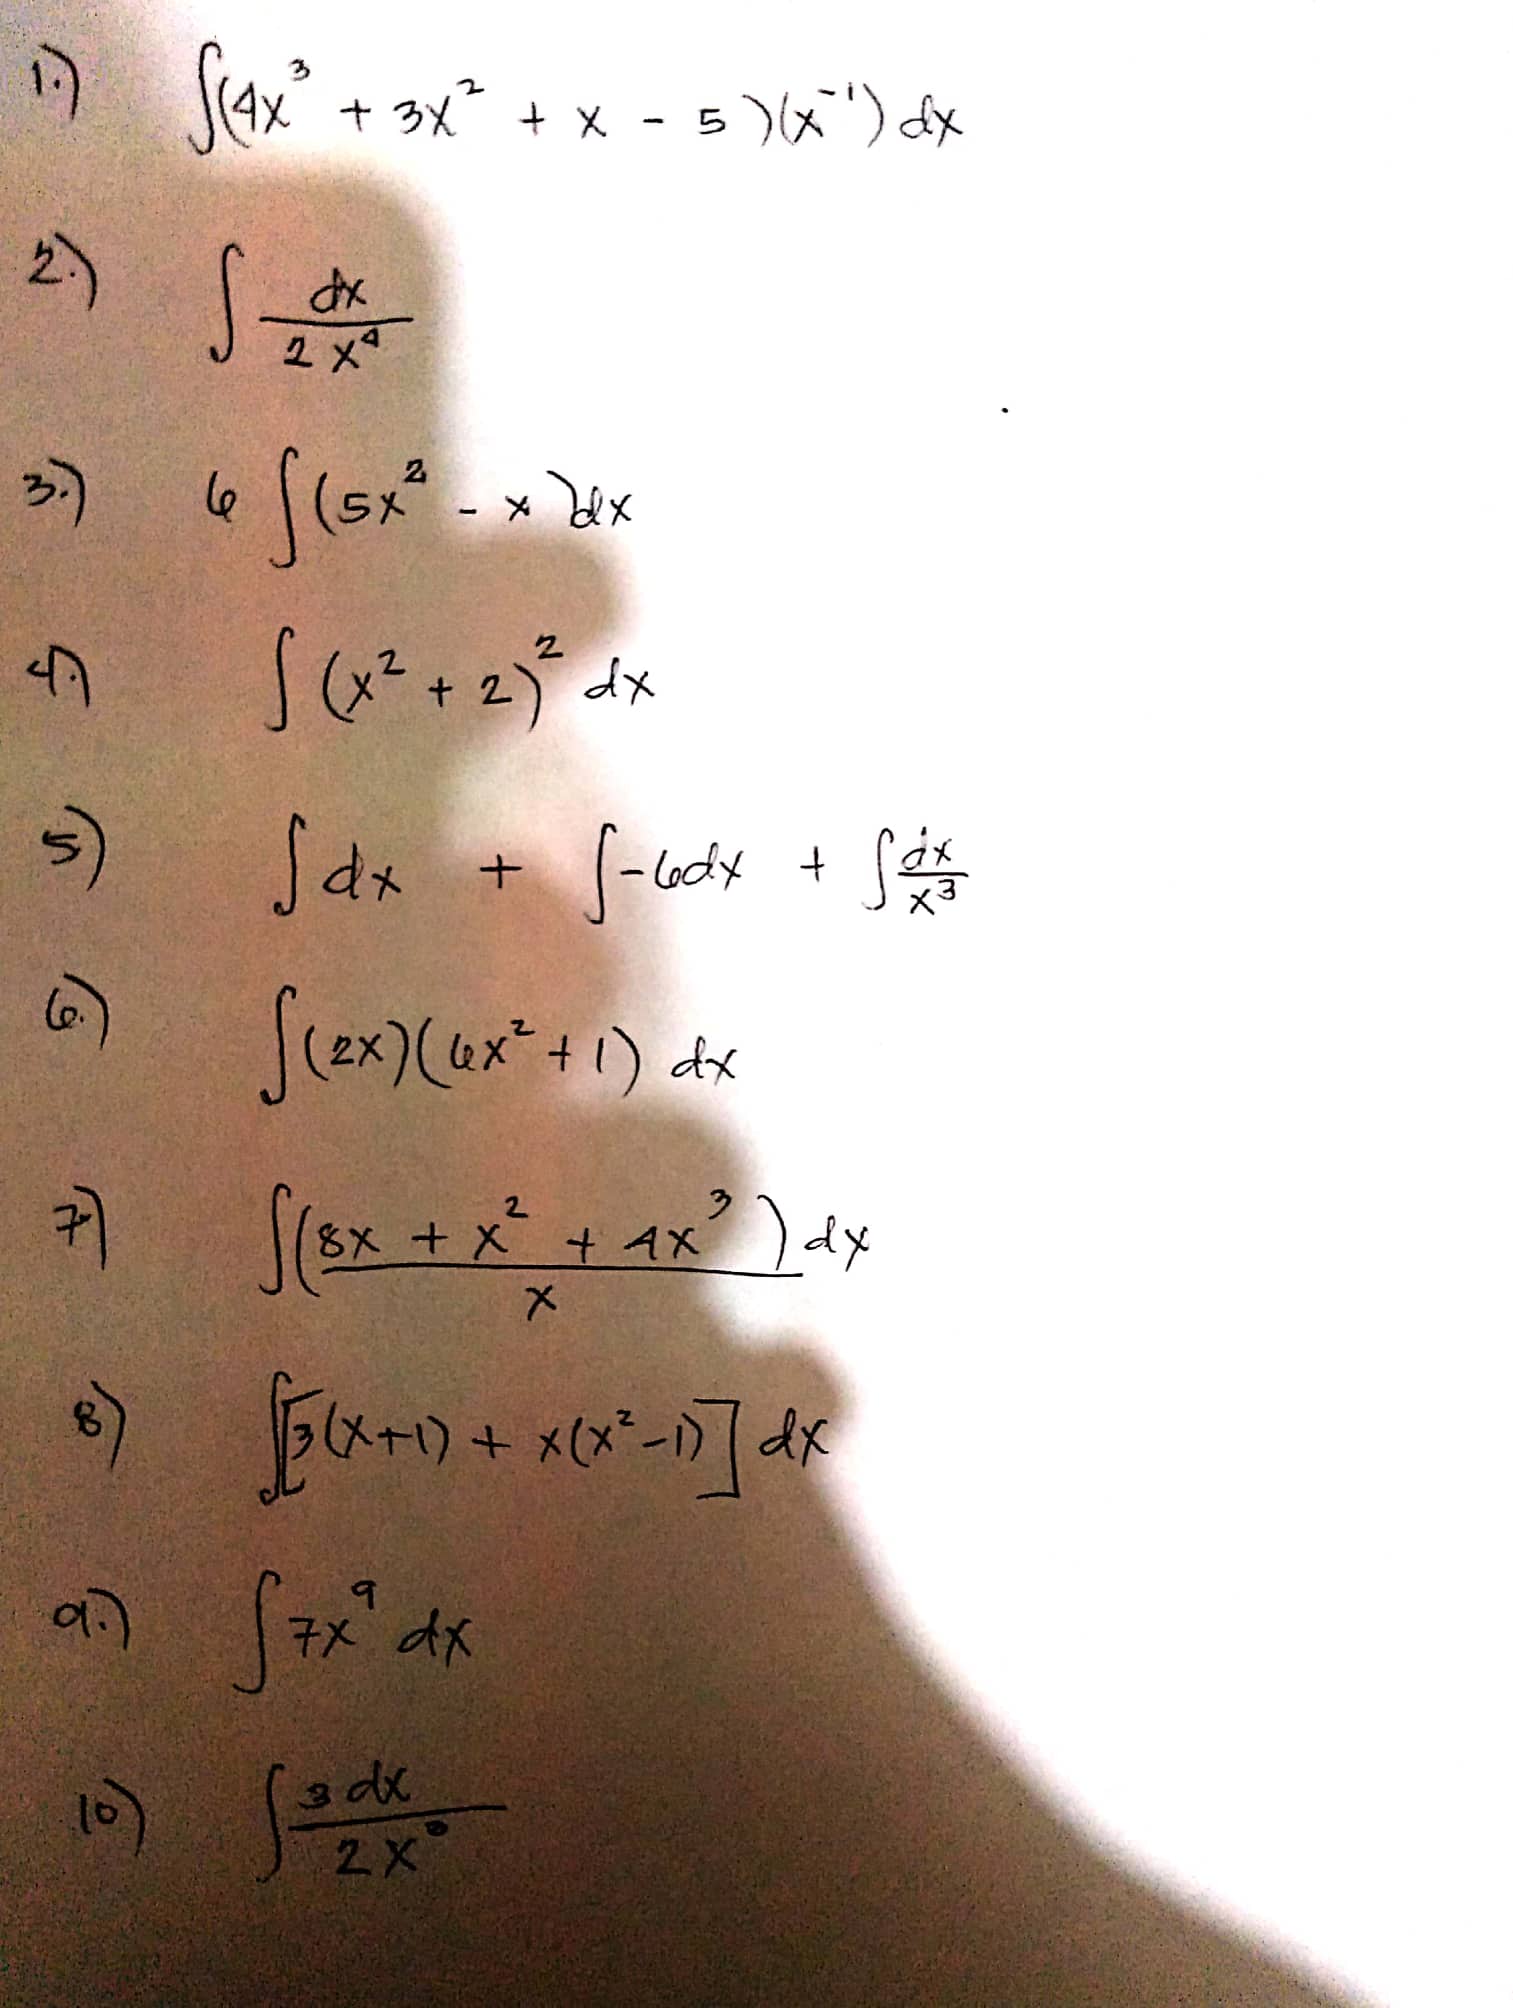 1.) ∫(4x³ + 3x² + x - 5)(x⁻¹) dx
2.) ∫ dx / 2x⁴
3.) 6 ∫(5x² - x)dx
4.) ∫ (x² + 2)² dx
5) ∫dx + ∫-6dx + ∫dx/x³
6.) ∫(2x)(6x² + 1) dx
7) ∫(8x + x² + 4x³ / x) dx
8) ∫[3(x+1) + x(x²-1)] dx
9.) ∫7x⁹ dx
10) ∫ 3 dx / 2x